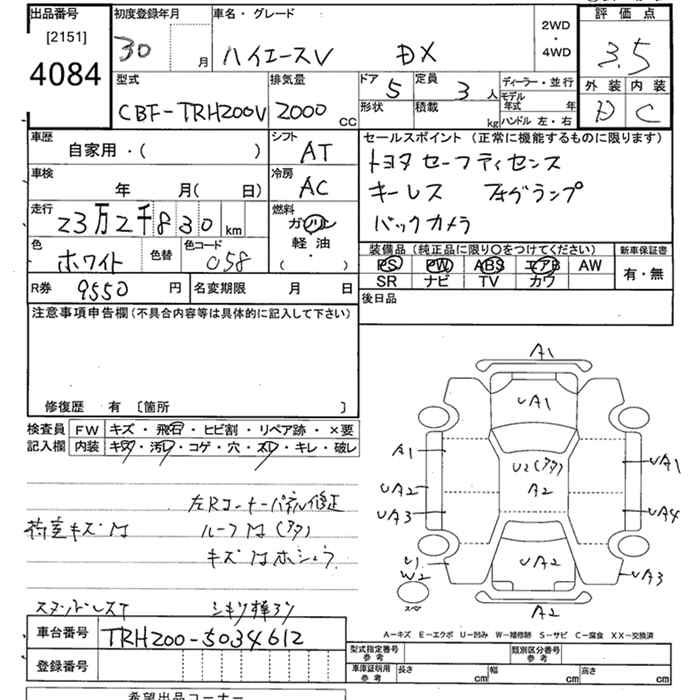 出品番号
[2151]
4084
初度登録年月
30 月
車名・グレード
ハイエースV DX
2WD
・
4WD
評価点
3.5
外装 内装
D C
型式
CBF-TRH200V
排気量
2000 CC
ドア
5
定員
3人
形状
積載 kg
ディーラー・並行
モデル年式 年
ハンドル 左・右
車歴
自家用・( )
シフト
AT
車検
年 月( 日)
冷房
AC
走行
23万2千830 km
燃料
ガソリン
軽油
( ・ )
色
ホワイト
色替
色コード
058
R券 9550 円
名変期限 月 日
セールスポイント (正常に機能するものに限ります)
トヨタセーフティセンス
キーレス フォグランプ
バックカメラ
装備品(純正品に限り○をつけてください)
新車保証書
PS PW ABS エアB AW
SR ナビ TV カワ
有・無
後日品
注意事項申告欄(不具合内容等は具体的に記入して下さい)
修復歴 有 〔箇所 〕
検査員
記入欄
FW キズ・飛石・ヒビ割・リペア跡・×要
内装 キズ・汚レ・コゲ・穴・スレ・キレ・破レ
左Rコーナーパネル修正
荷室キズM ルーフM(アタ)
キズMホシュウ
A1
UA1
A1
U2(アタ)
UA1
UA2
A2
UA3
UA4
U1
W2
UA2
UA3
スペ
A2
A-キズ E-エクボ U-凹み W-補修跡 S-サビ C-腐食 XX-交換済
車台番号 TRH200-5034612
登録番号
型式指定番号
参考
類別区分番号
参考
車庫証明用
参考
長さ cm
幅 cm
高さ cm
希望出品コーナー